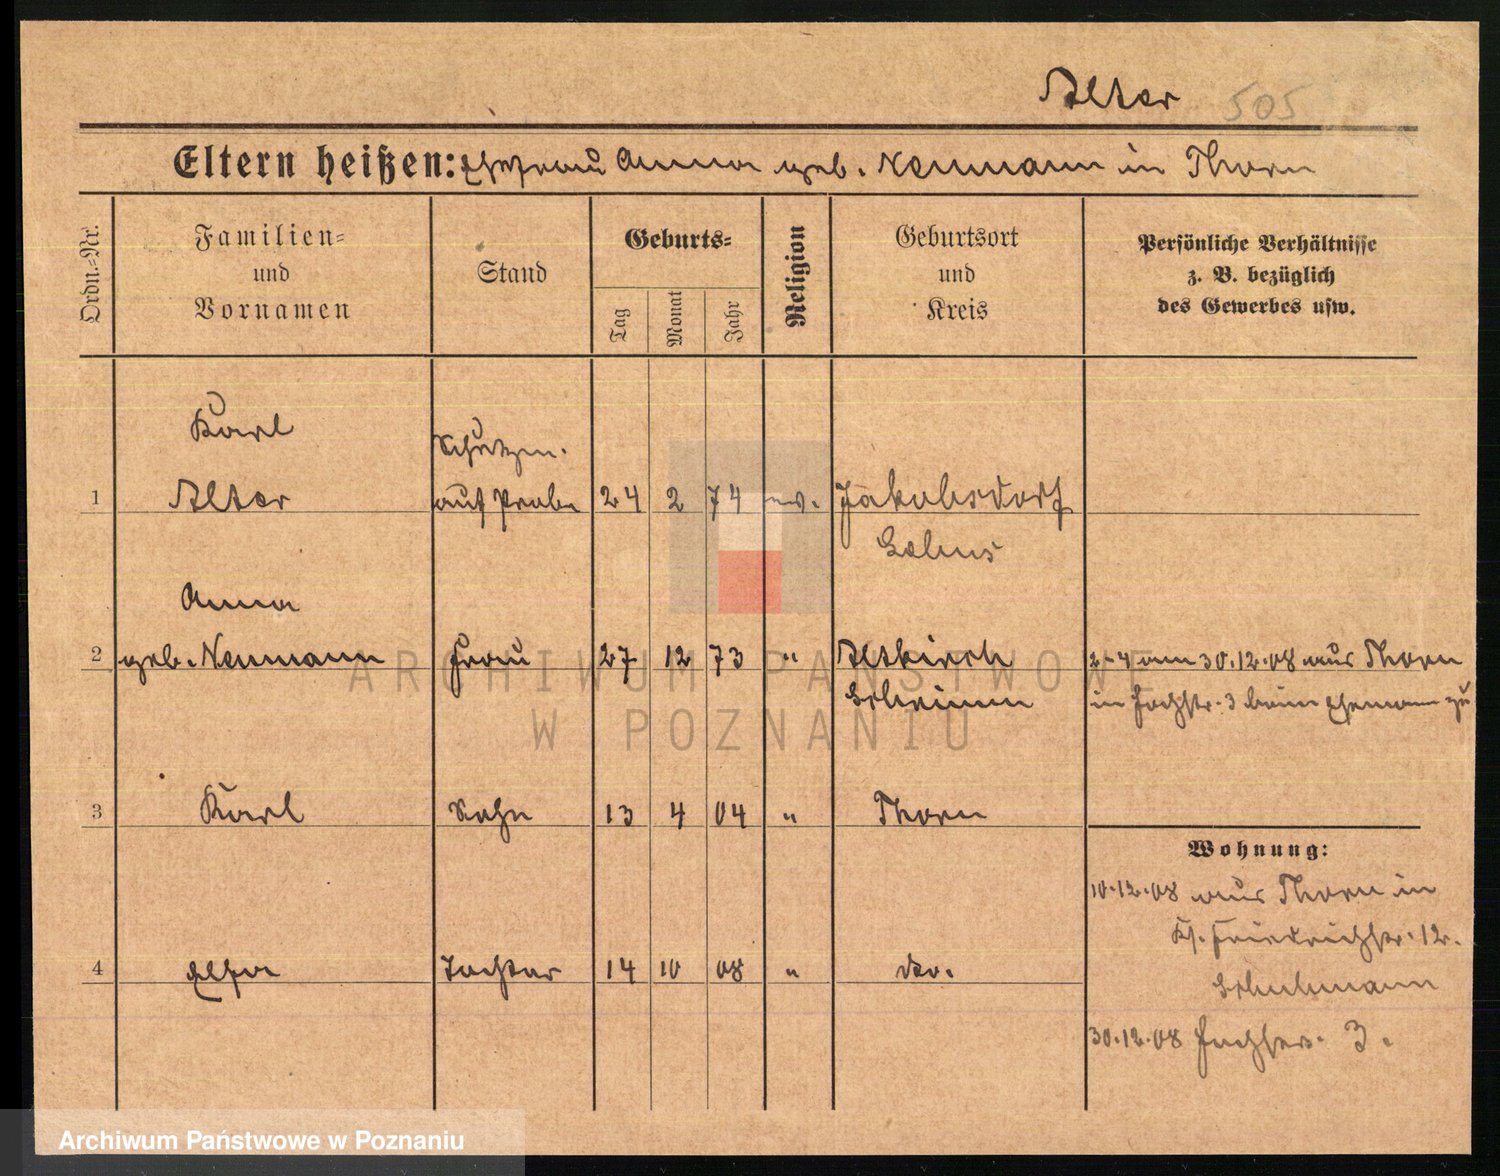 Alter 505
Eltern heißen: Ehefrau Anna geb. Neumann in Thorn
Ordn.-Nr.
Familien- und Vornamen
Stand
Geburts-
Tag
Monat
Jahr
Religion
Geburtsort und Kreis
Persönliche Verhältnisse z. B. bezüglich des Gewerbes usw.
Karl
Schutzm.
1 Alter auf Probe 24 2 74 ev. Jakobsdorf
Anna
2 geb. Neumann Frau 27 12 73 " Altkirch 2-4 am 30.12.08 aus Thorn
in 3 beim Ehemann zu
3 Karl Sohn 13 4 04 " Thorn
Wohnung:
10.12.08 aus Thorn in
Kl. Friedrichstr. 12.
Schuhmann
4 Elsa Tochter 14 10 08 " do.
30.12.08 3.
ARCHIWUM PAŃSTWOWE
W POZNANIU
Archiwum Państwowe w Poznaniu